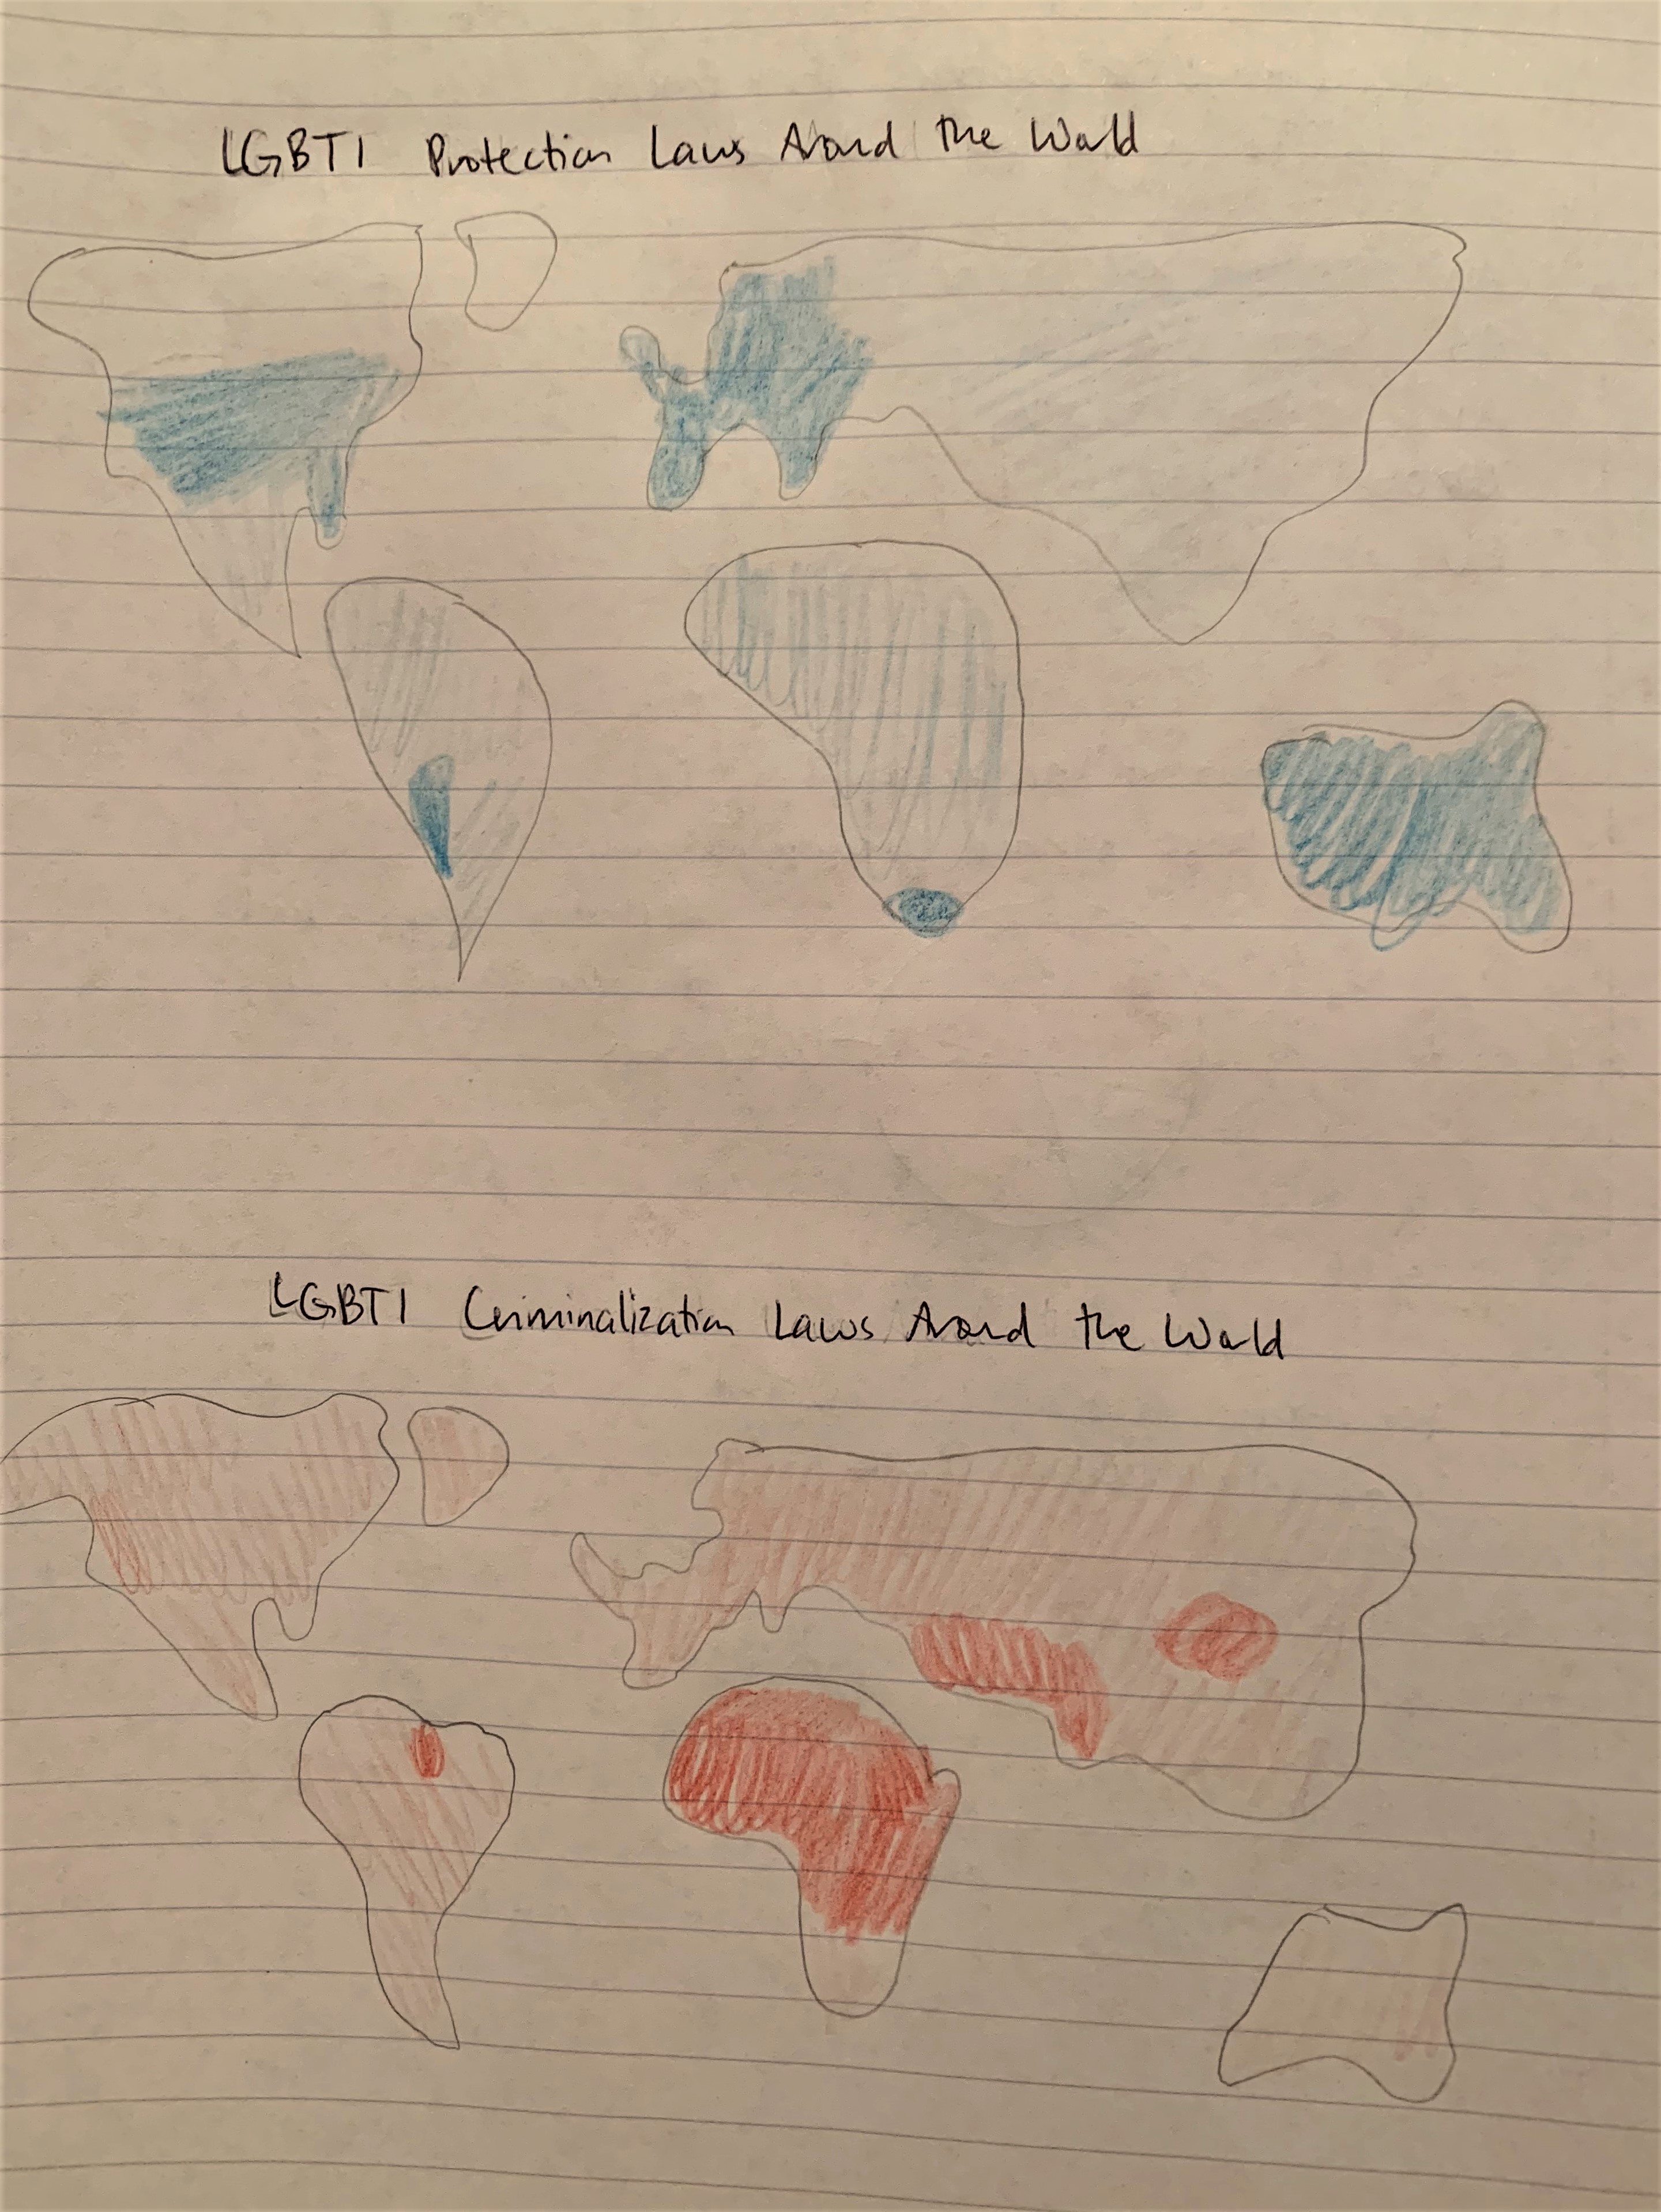 LGBTI Protection Laws Around the World
LGBTI Criminalization Laws Around the World